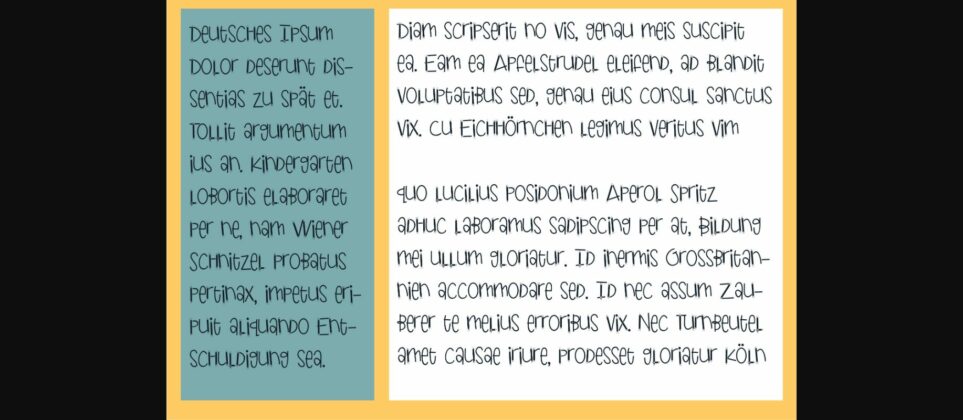 Deutsches Ipsum
Dolor deserunt dis-
sentias zu spät et.
Tollit argumentum
ius an. Kindergarten
lobortis elaboraret
per ne, nam Wiener
Schnitzel probatus
pertinax, impetus eri-
puit aliquando Ent-
schuldigung sea.
Diam scripserit no vis, genau meis suscipit
ea. Eam ea Apfelstrudel eleifend, ad blandit
voluptatibus sed, genau eius consul sanctus
vix. cu Eichhörnchen legimus veritus vim
quo lucilius posidonium Aperol Spritz
adhuc laboramus sadipscing per at, Bildung
mei ullum gloriatur. Id inermis Grossbritan-
nien accommodare sed. Id nec assum Zau-
berer te melius erroribus vix. Nec Turnbeutel
amet causae iriure, prodesset gloriatur Köln